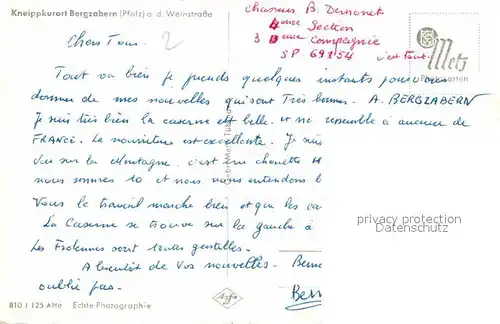 Kneippkurort Bergzabern (Pfalz) a. d. Weinstraße
Chasseur B. Demonet
4eme Section
3eme Compagnie
SP. 69154
c'est tout.
Metz
Postkarten
Chers Tous.
2
Tout va bien je prends quelques instants pour vous
donner de mes nouvelles qui sont Très bonnes. A. BERGZABERN
Je suis très bien la caserne est belle. et ne ressemble à aucune de
FRANCE. La nourriture est excellente. Je suis
vue sur la Montagne c'est un chouette
nous sommes 10 et nous nous entendons b
Vous le travail marche bien et que les ca
La Caserne se trouve sur la gauche à
Les Frolennes sont toutes gentilles.
A bientôt de Vos nouvelles. Berna
oublié pas. Bern
Gebr. Metz Tübingen
privacy protection
Datenschutz
810 / 125 AHe Echte Photographie
Agfa